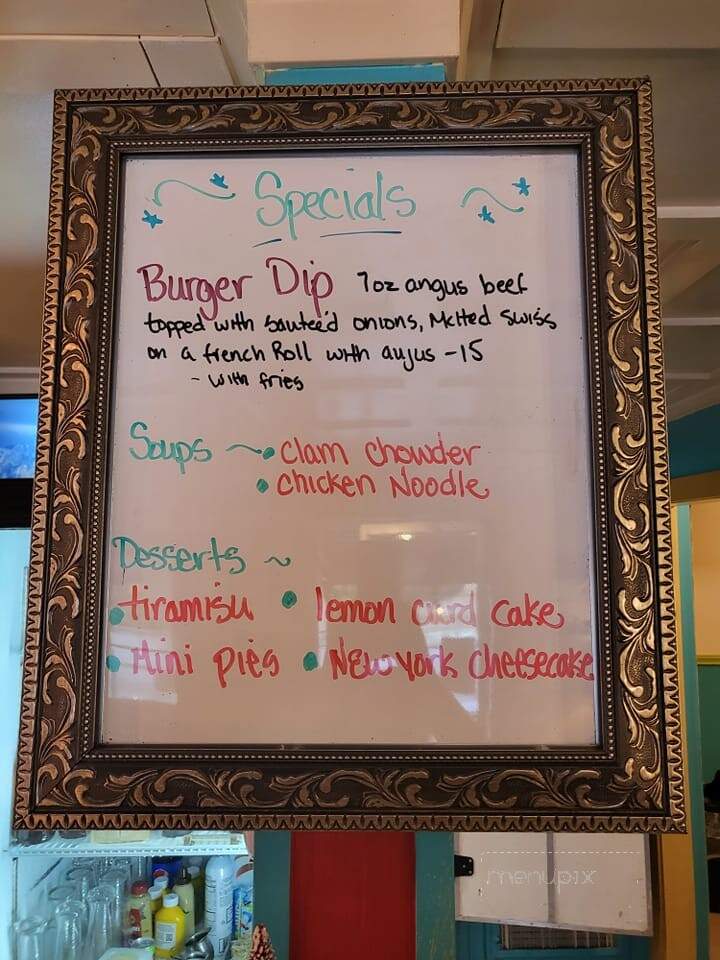 Specials
Burger Dip 7oz angus beef
topped with sauteé'd onions, Melted Swiss
on a french Roll with aujus -15
- with fries
Soups ~ • clam chowder
• chicken Noodle
Desserts ~
• tiramisu • lemon curd cake
• Mini pies • New York cheesecake
menupix